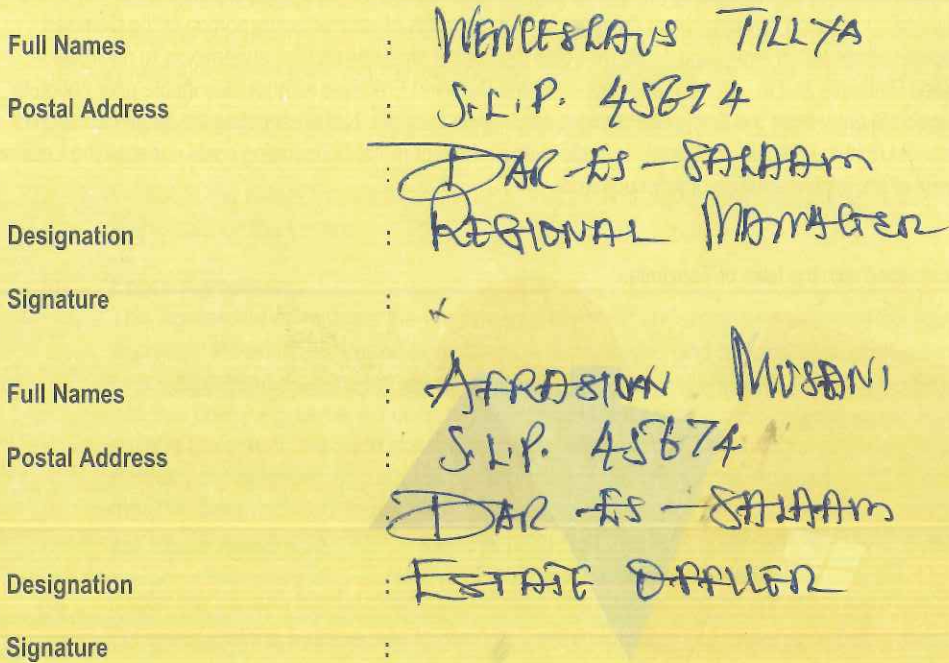 Full Names : WENCESLAUS TILLYA
Postal Address : S.L.P. 45674
: DAR-ES-SALAAM
Designation : REGIONAL MANAGER
Signature : x
Full Names : MUSANI
Postal Address : S.L.P. 45674
: DAR-ES-SALAAM
Designation : ESTATE OFFICER
Signature :